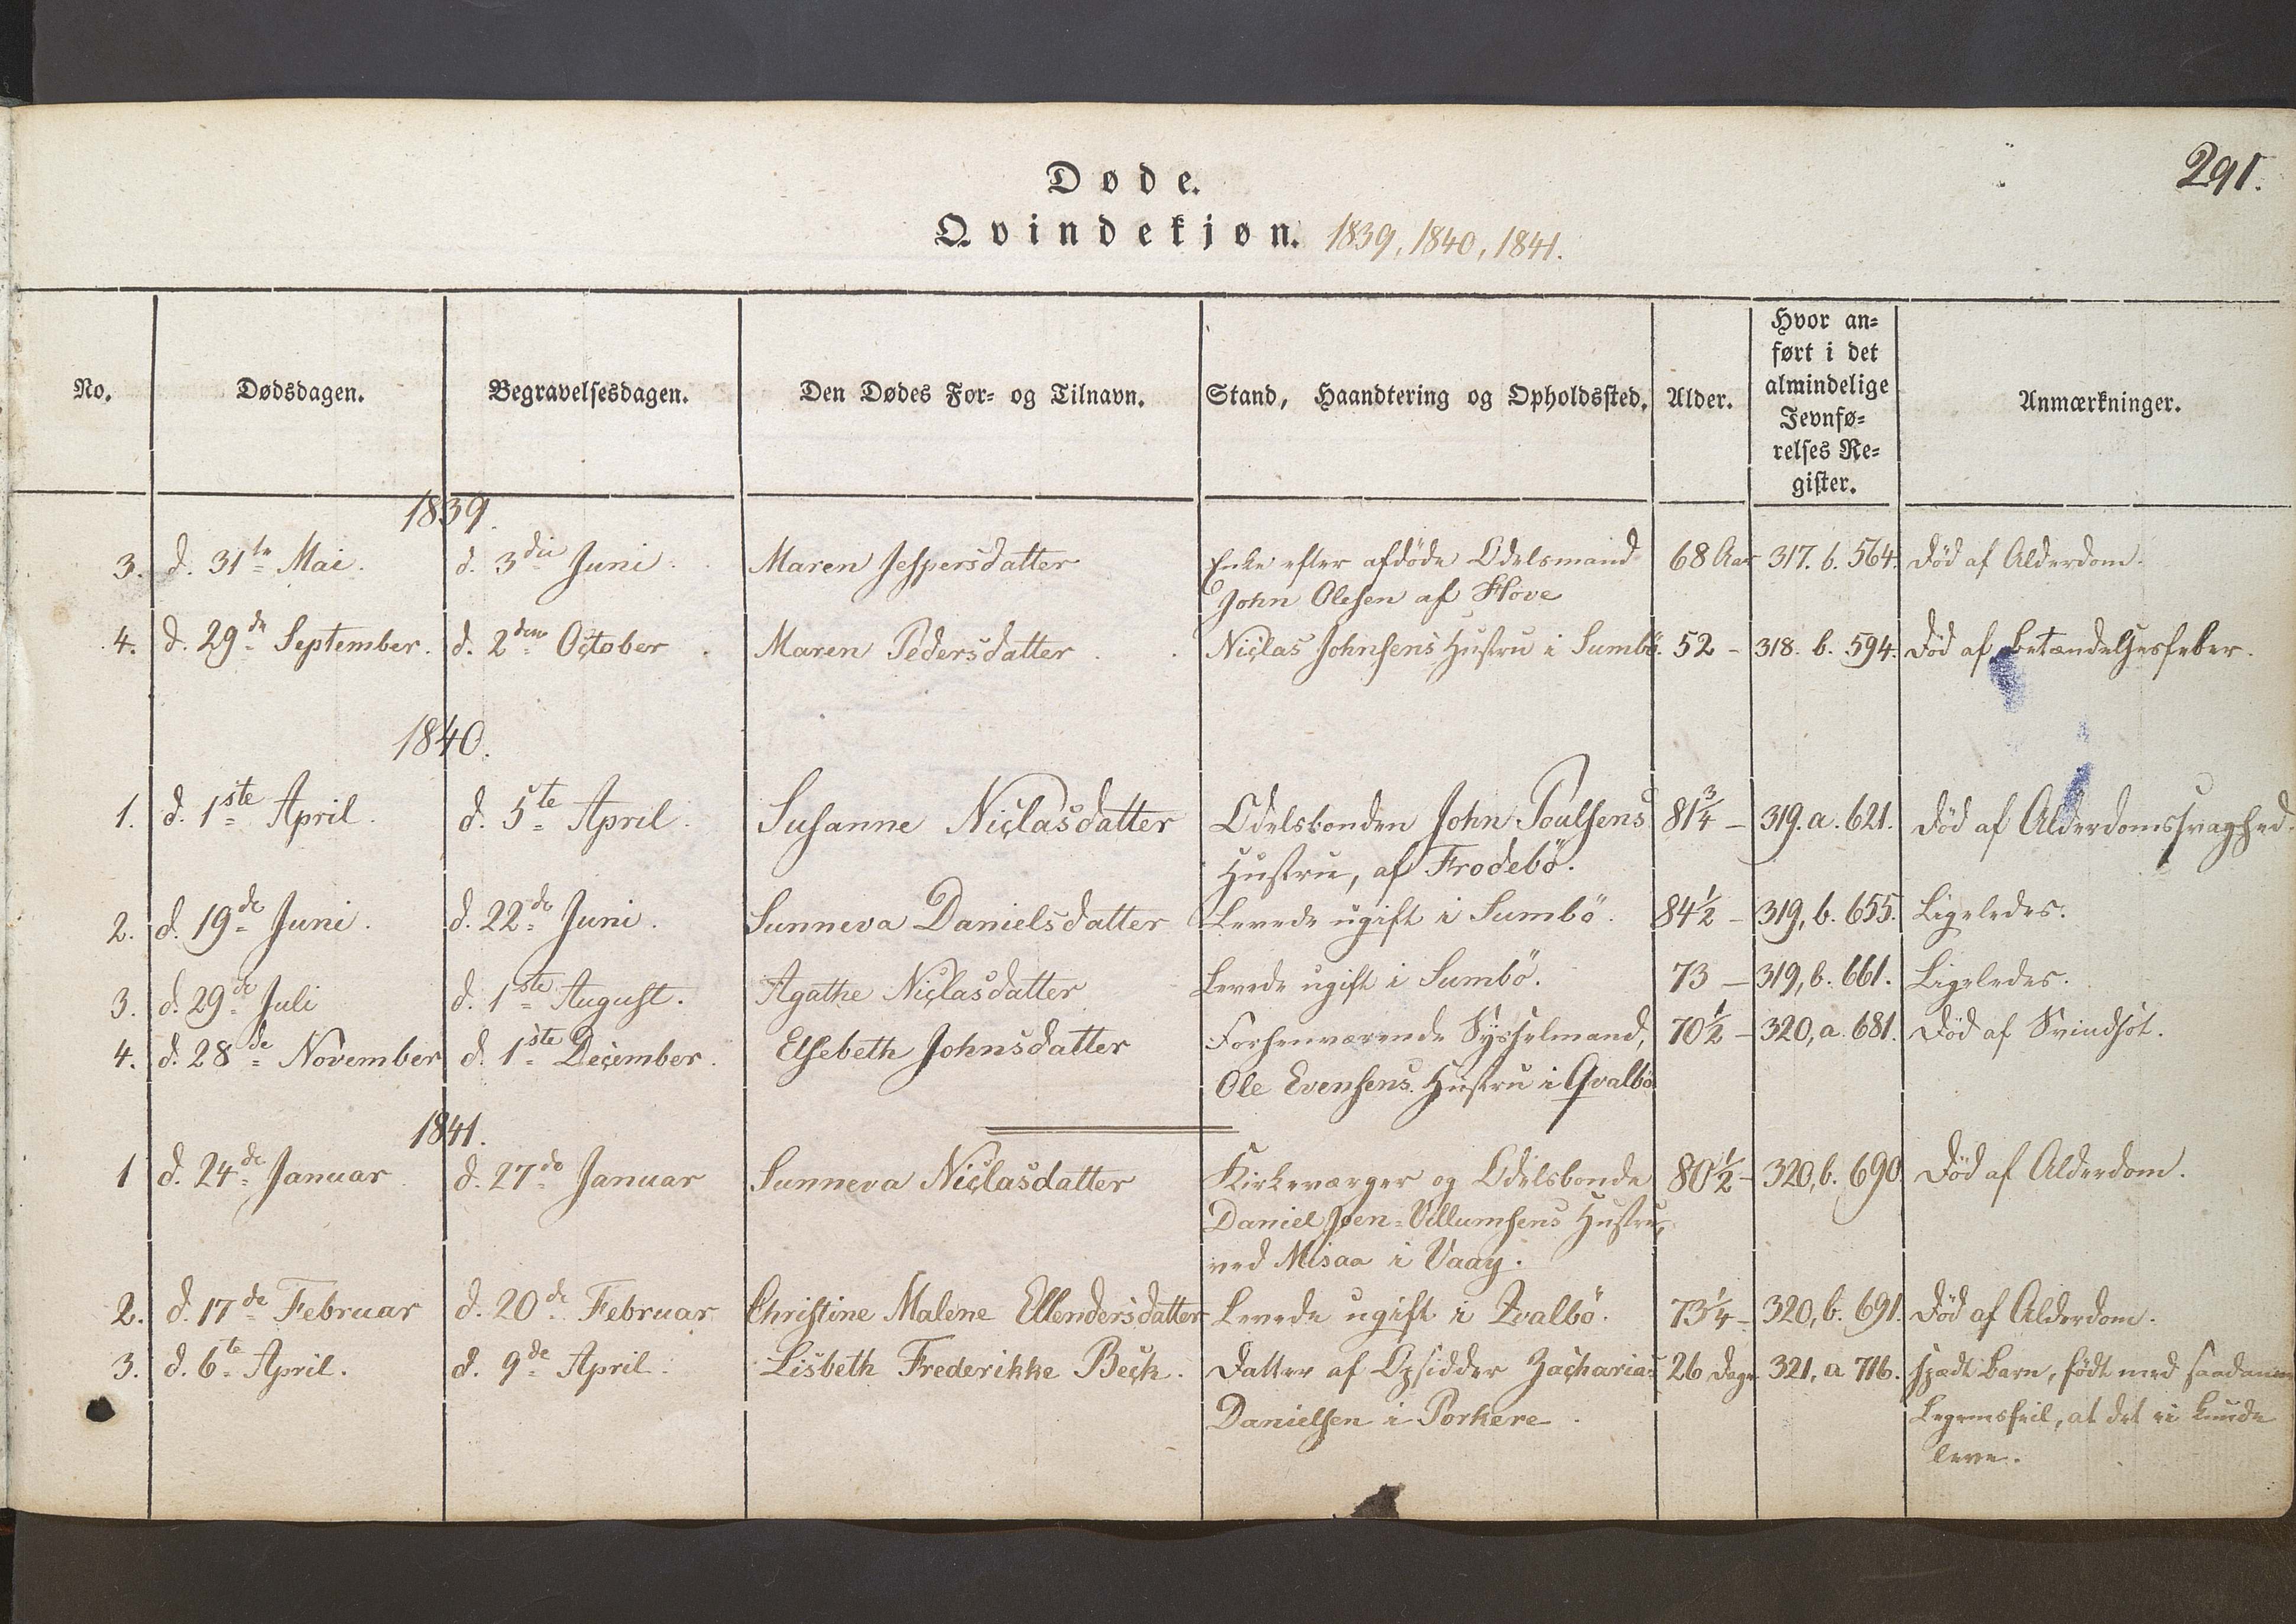 291.
Døde.
Qvindekjøn. 1839, 1840, 1841.
No. Dødsdagen. Begravelsesdagen. Den Dødes For- og Tilnavn. Stand, Haandtering og Opholdssted. Alder. Hvor an-
ført i det
almindelige
Jevnfø-
relses Re-
gister. Anmærkninger.
1839.
3. d. 31te Mai. d. 3die Juni. Maren Jespersdatter Enke efter afdöde Odelsmand 68 Aar 317. b. 564. Död af Alderdom.
John Olesen af Hove
4. d. 29de September. d. 2den October Maren Pedersdatter Niclas Johnsens Hustru i Sumbö. 52 - 318. b. 594. Död af Betændelsesfeber.
1840.
1. d. 1ste April. d. 5te April. Susanne Niclasdatter Odelsbonden John Poulsens 81 3/4 - 319. a. 621. Död af Alderdomssvaghed.
Hustru, af Frodebö.
2. d. 19de Juni. d. 22de Juni. Sunneva Danielsdatter Levede ugift i Sumbö. 84 1/2 - 319, b. 655. Ligeledes.
3. d. 29de Juli d. 1ste August. Agathe Niclasdatter Levede ugift i Sumbö. 73 - 319, b. 661. Ligeledes.
4. d. 28de November d. 1ste December. Elsebeth Johnsdatter Forhenværende Sysselmand, 70 1/2 - 320, a. 681. Död af Svindsot.
Ole Evensens Hustru i Qvalbö
1841.
1 d. 24de Januar d. 27de Januar Sunneva Niclasdatter Kirkeværger og Odelsbonde 80 1/2 - 320, b. 690. Död af Alderdom.
Daniel Joen-Villumsens Hustru,
ved Misaa i Vaag.
2. d. 17de Februar d. 20de Februar Christine Malene Ellendersdatter Levede ugift i Qvalbö. 73 1/4 - 320, b. 691. Död af Alderdom.
3. d. 6te April. d. 9de April. Lisbeth Frederikke Beck. Datter af Opsidder Zacharias 26 Dage 321, a 716. Spædt Barn, födt med saadanne
Danielsen i Porkere. Legemsfeil, at det ei kunde
leve.